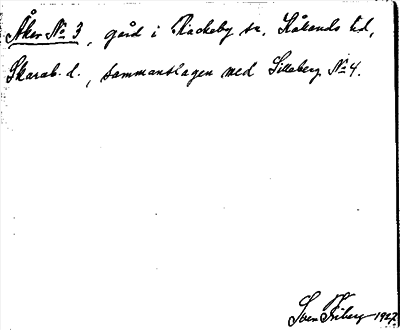 Åker No 3, gård i Rackeby sn. Kållands hd,
Skarab. l., sammanslagen med Silleberg No 4.
Sven Friberg 1927.